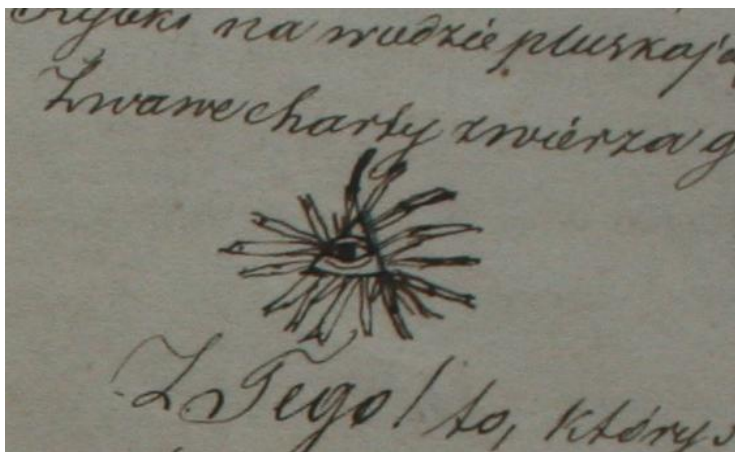 Rybki na wodzie pluskają
Żwawe charty zwiérza g
Z Tego! to, którys